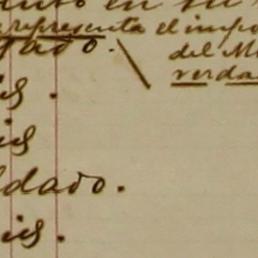 en su
representa el impo
tado. del M
verda
is
is
ldado.
is.